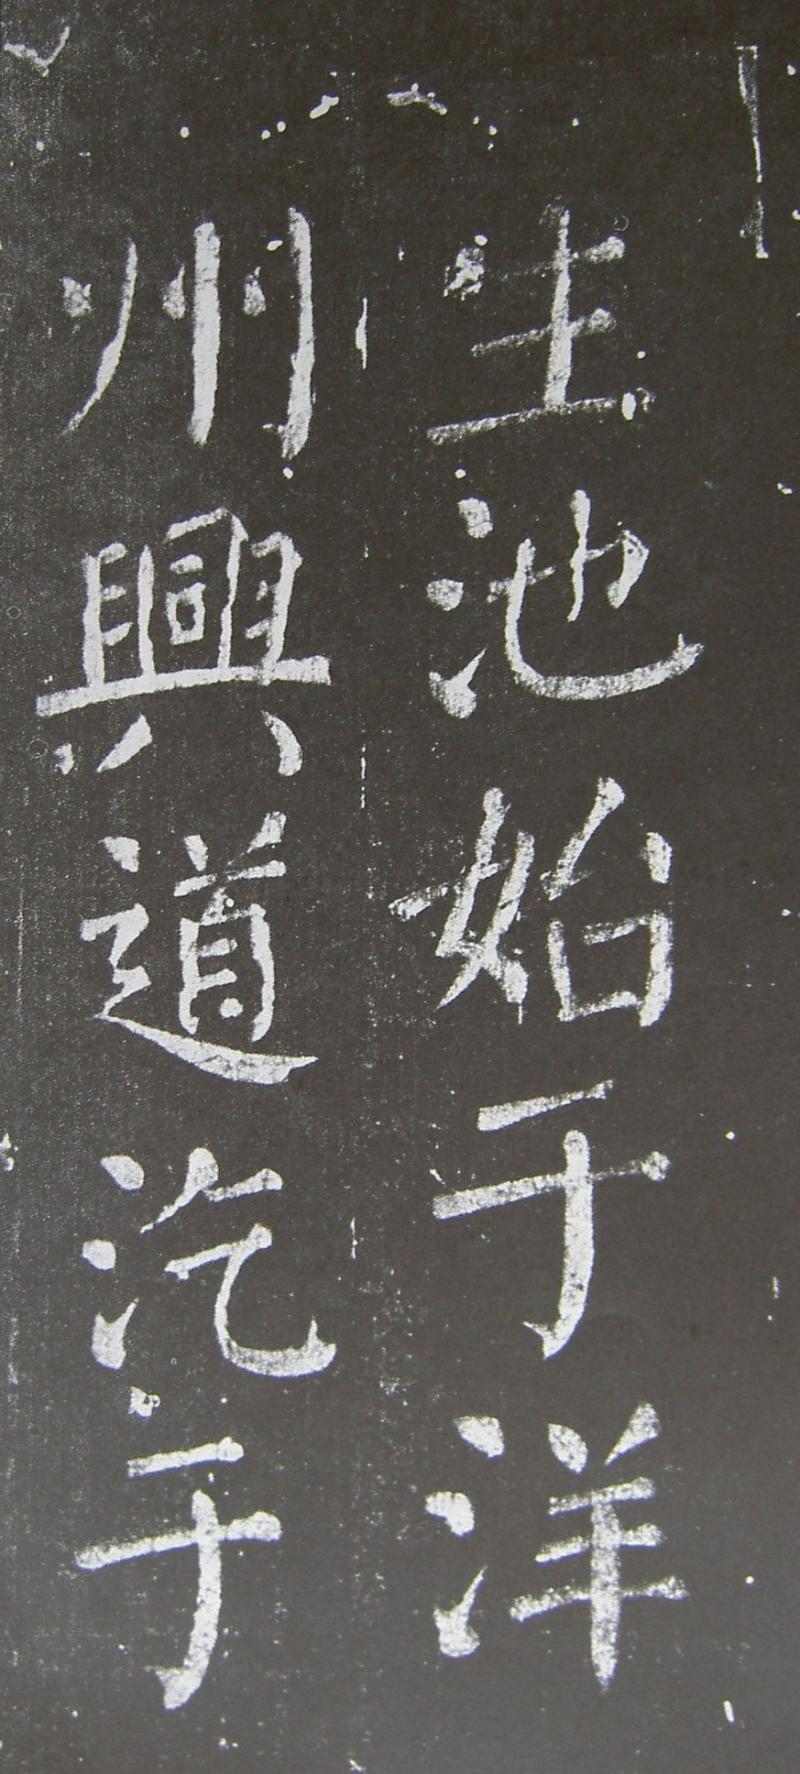 生池始于洋
州興道汔于